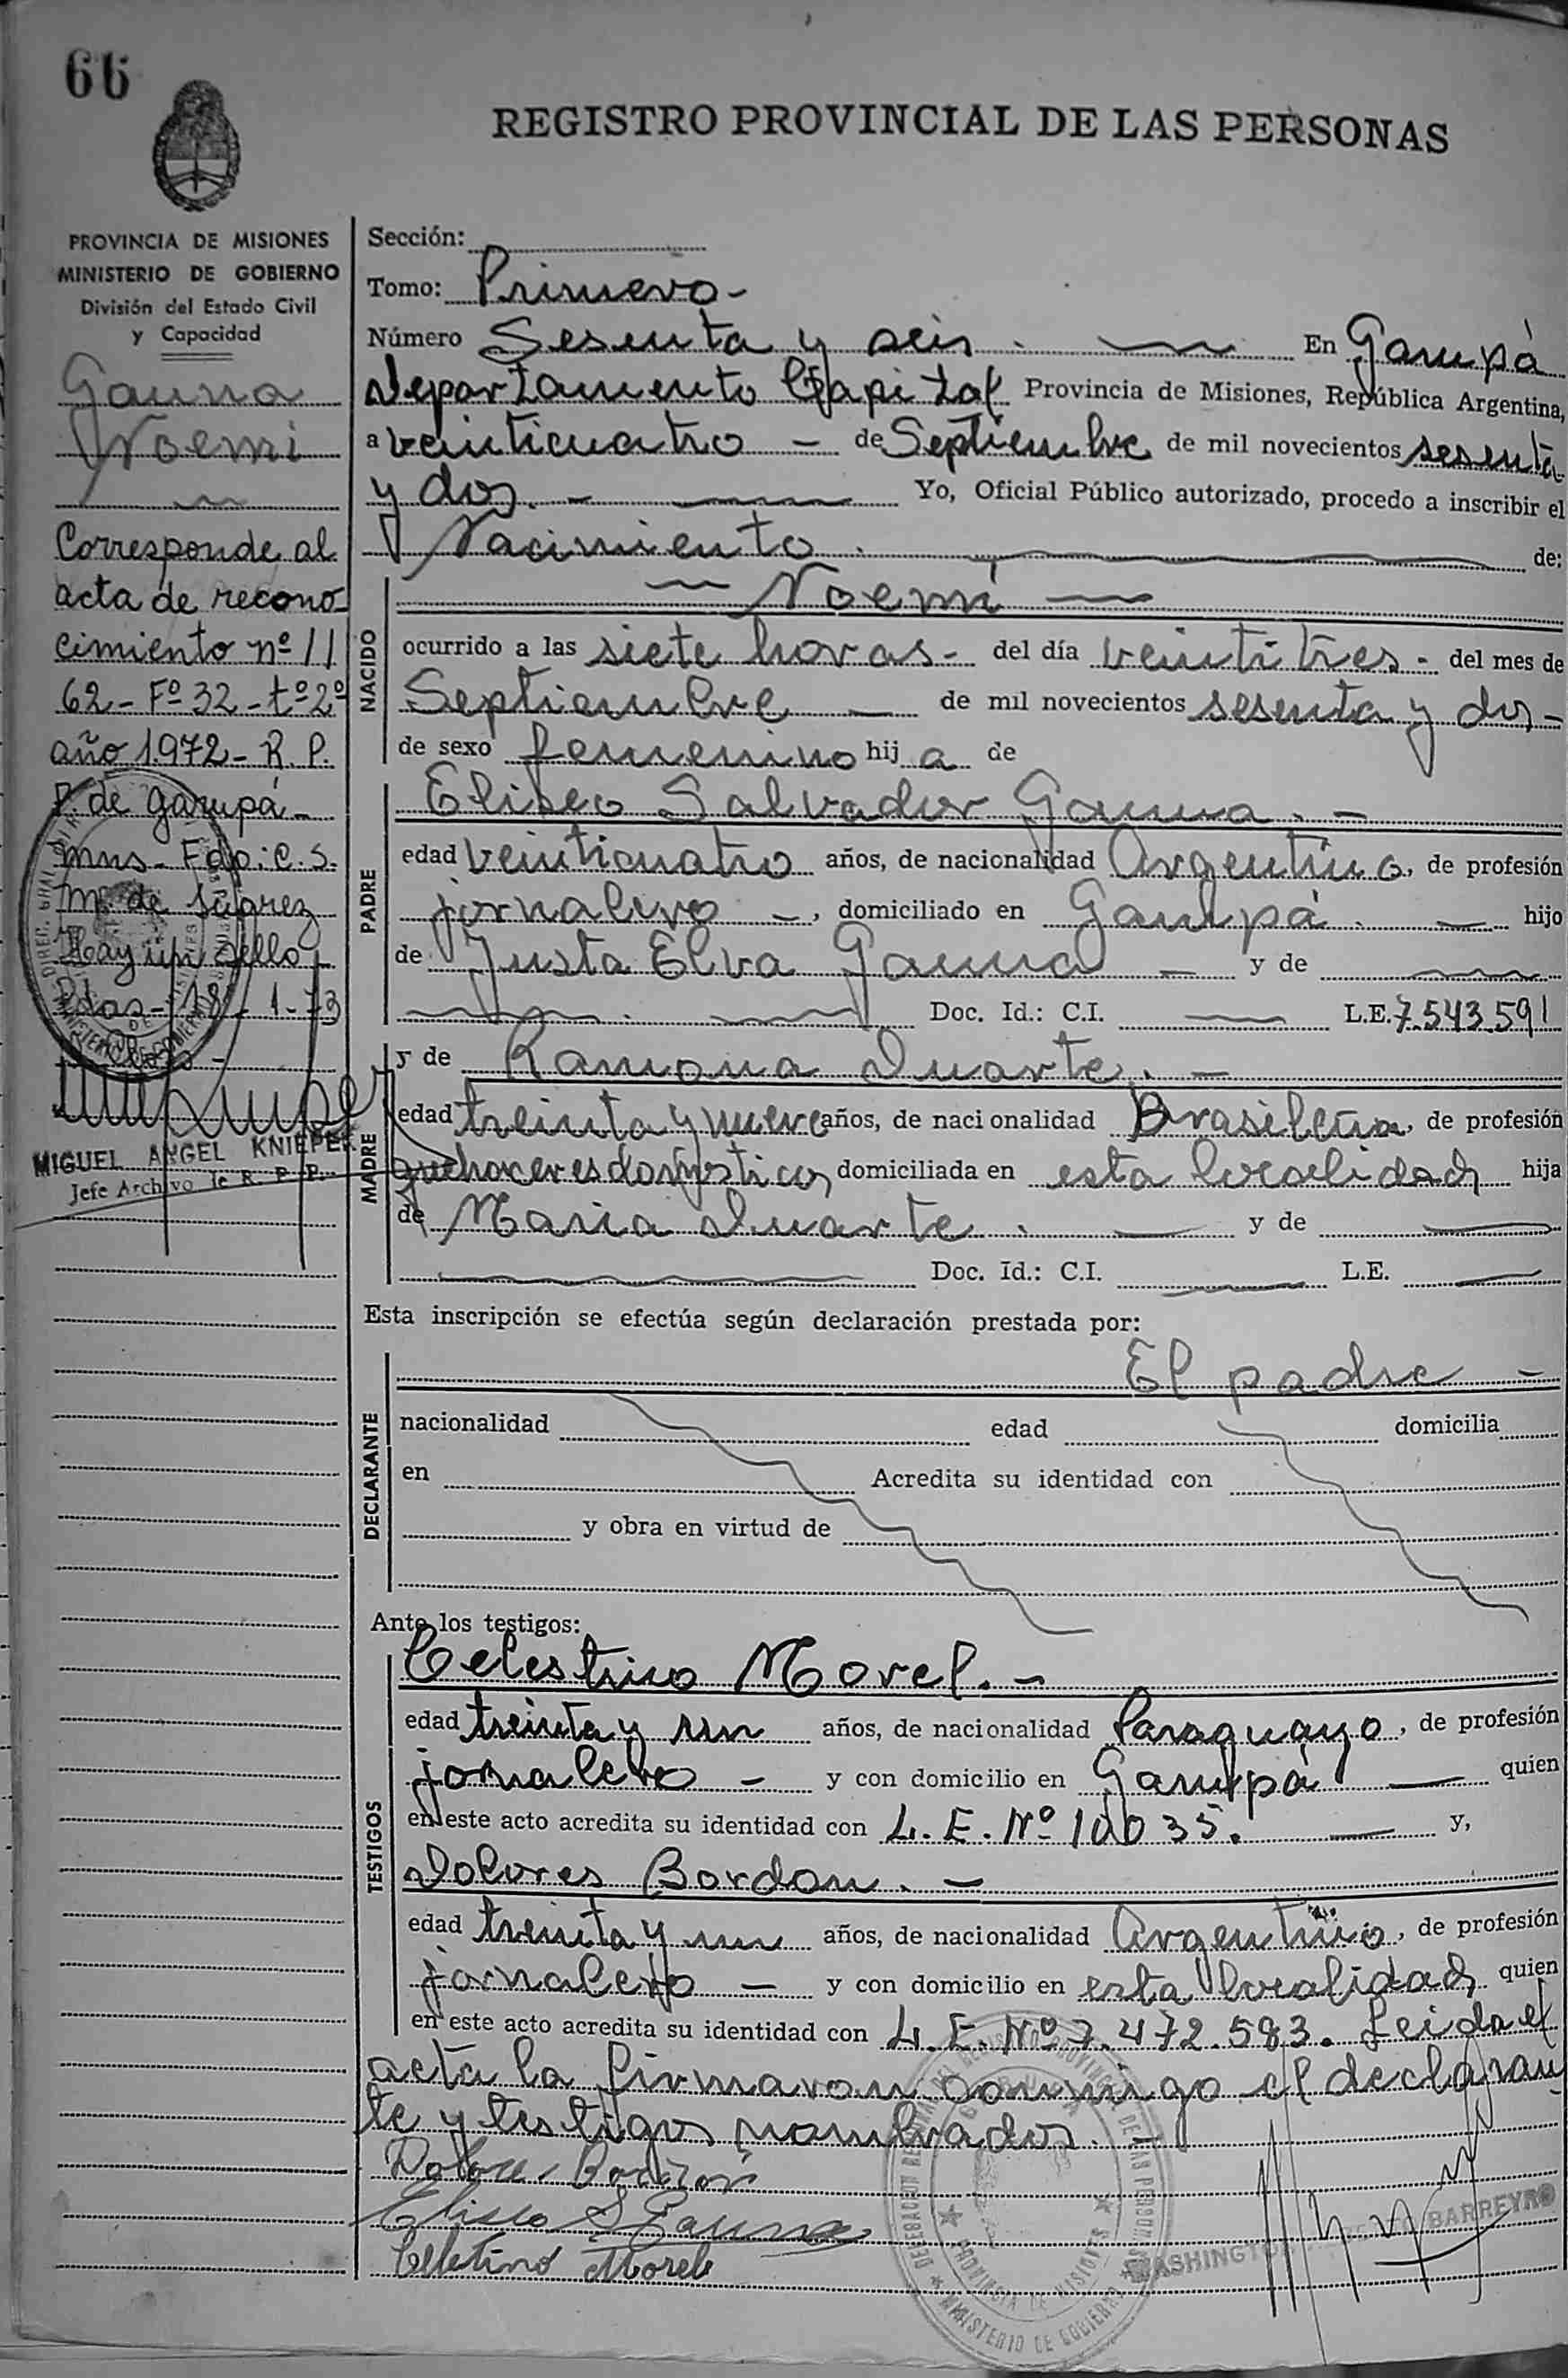 66
REGISTRO PROVINCIAL DE LAS PERSONAS
PROVINCIA DE MISIONES
MINISTERIO DE GOBIERNO
División del Estado Civil
y Capacidad
Gauna
Noemi
Corresponde al
acta de recono-
cimiento nº 11
62 - Fº 32 - tº 2º
año 1.972 - R. P.
P. de Garupá -
Mns - Fdo: C. S.
M. de Suarez
Hay un sello
Pdas - 18 - 1 - 73
MIGUEL ANGEL KNIEPER
Jefe Archivo de R. P. P.
Sección:
Tomo: Primero -
Número Sesenta y seis . En Garupá
Departamento Capital Provincia de Misiones, República Argentina,
a veinticuatro - de Septiembre de mil novecientos sesenta
y dos. - Yo, Oficial Público autorizado, procedo a inscribir el
Nacimiento . de:
NACIDO
Noemi
ocurrido a las siete horas - del día veintitres - del mes de
Septiembre de mil novecientos sesenta y dos -
de sexo femenino hij a de
PADRE
Eliseo Salvador Gauna . -
edad veinticuatro años, de nacionalidad Argentino, de profesión
jornalero - , domiciliado en Garupá hijo
de Justa Elva Gauna - y de
Doc. Id.: C.I. L.E. 7.543.591
MADRE
y de Ramona Duarte. -
edad treinta y nueve años, de nacionalidad Brasileña, de profesión
quehaceres domésticos domiciliada en esta localidad hija
de Maria Duarte . y de
Doc. Id.: C.I. L.E.
Esta inscripción se efectúa según declaración prestada por:
DECLARANTE
El padre -
nacionalidad edad domicilia
en Acredita su identidad con
y obra en virtud de
Ante los testigos:
TESTIGOS
Celestino Morel. -
edad treinta y un años, de nacionalidad Paraguayo, de profesión
jornalero - y con domicilio en Garupá quien
en este acto acredita su identidad con L. E. Nº 10035. y,
Dolores Bordon. -
edad treinta y un años, de nacionalidad Argentino, de profesión
jornalero - y con domicilio en esta localidad quien
en este acto acredita su identidad con L. E. Nº 7.472.583. Leida el
acta la firmaron conmigo el declaran
te y testigos nombrados. -
Dolore Bordon
Eliseo S Gauna
Celetino Morel
WASHINGTON BARREYRO
PROVINCIA DE MISIONES
MINISTERIO DE GOBIERNO